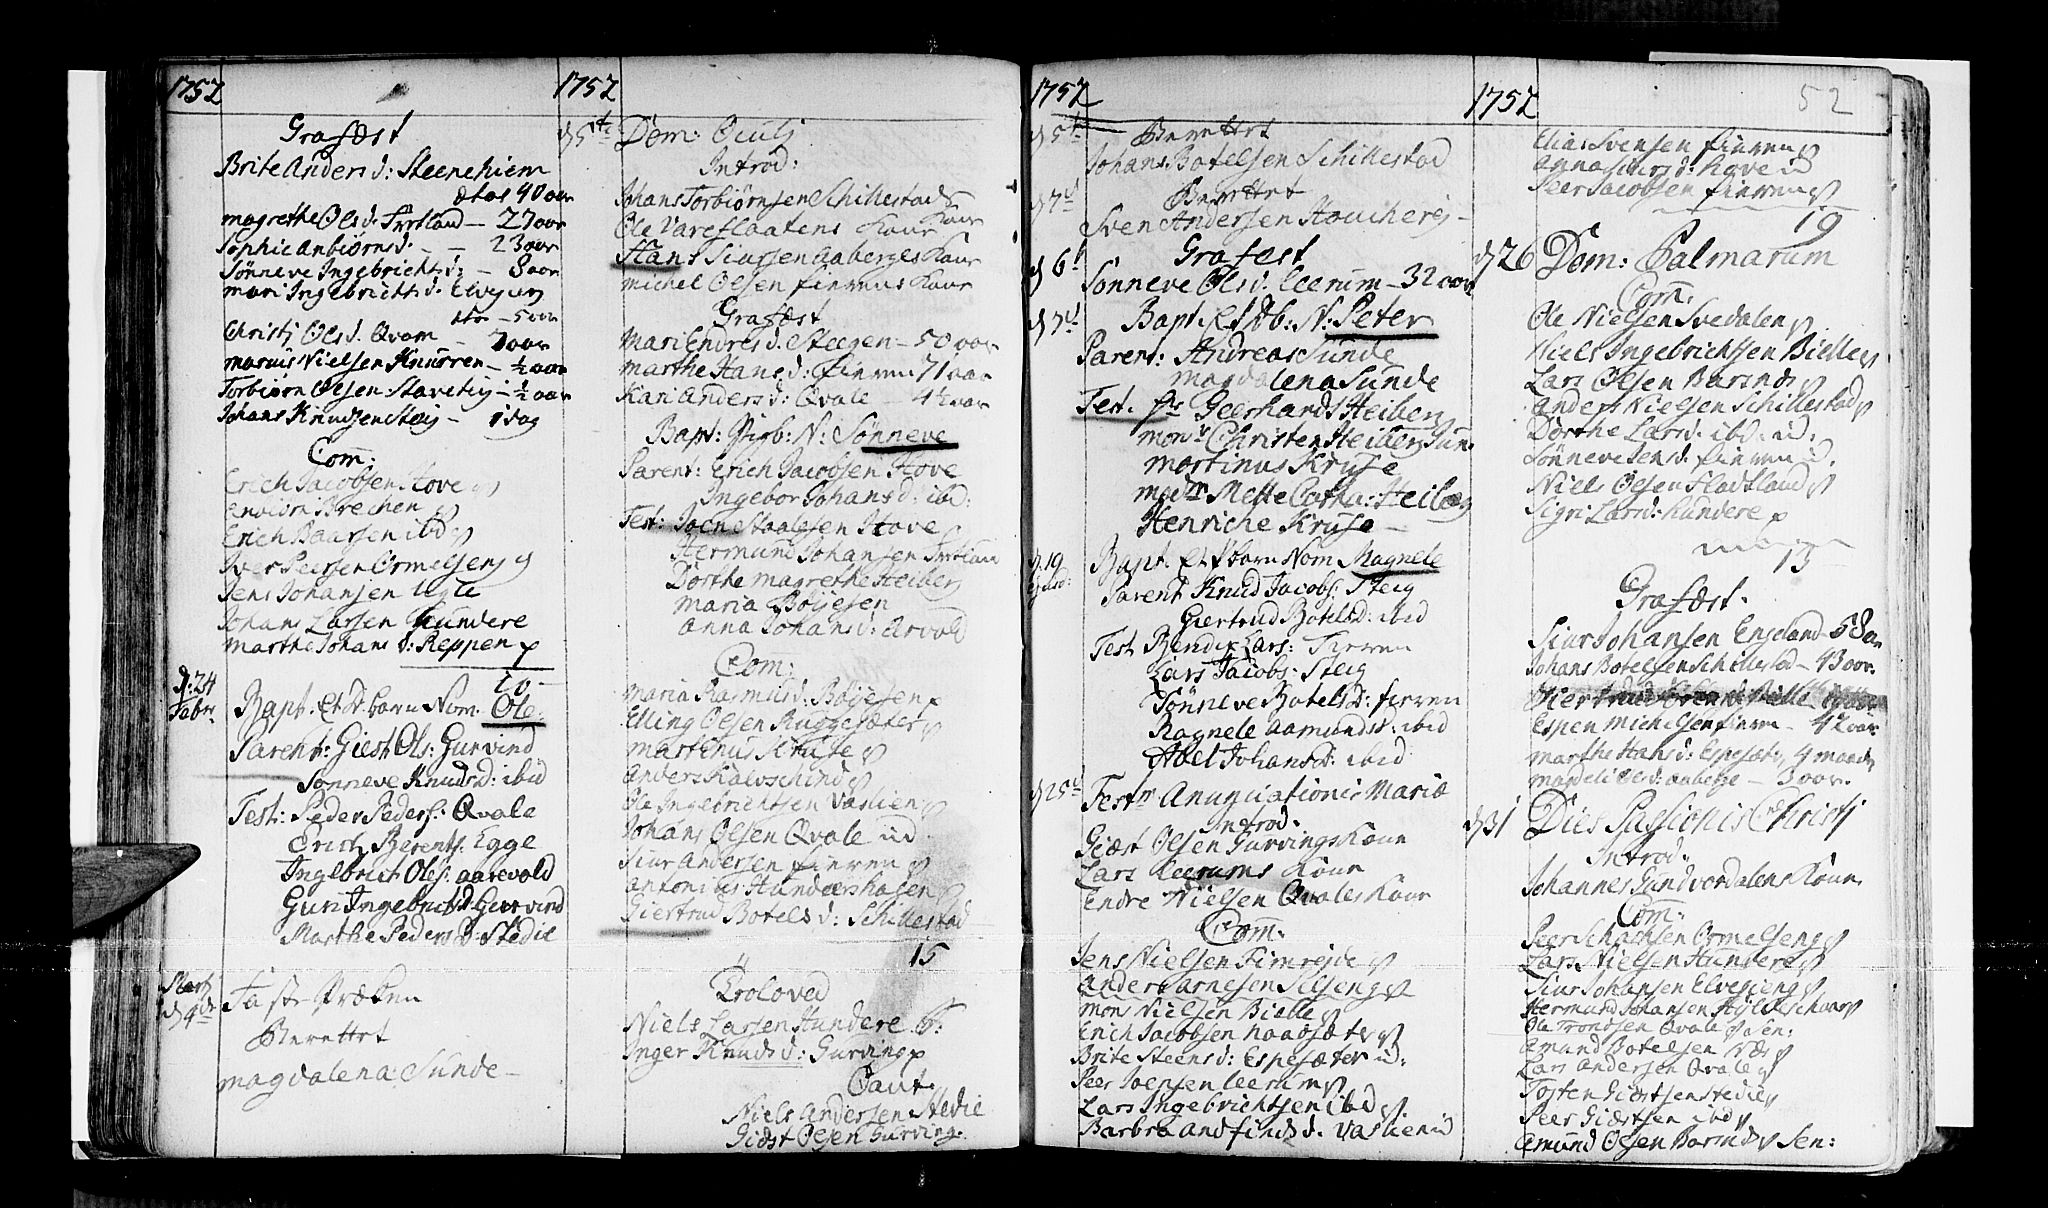 1752
Grafæst
Brite Andersd: Steenehiem
ætas 40 aar
magrethe Olsd: Frøtland — 27 aar
Sophie Anbiørnsd: — 23 aar
Sønneve Ingebrichtsd: — 8 aar
mari Ingebrichtsd:
æta — 5 aar
Christj Olsd: Qvam — 7 aar
marius Nielsen Knurren — ½ aar
Torbiørn Olsen Stavetig — ½ aar
Johans Knudsen Steig — 1 dag
Com:
Erich Jacobsen Hove
Brechen
Erich Baarsen ibd
Iver Peersen Ormelseng
Jens Johansen
Johans Larsen Hundere
marthe Johansd: Reppen
10
d: 24 Febr:
Bapt. et barn Nom. Ole.
Parent: Giest Ols: Gurvind
Sønneve Knudsd: ibid
Test: Peder Peders: Qvale
Erich Berents: Egge
Ingebrict Ols: aarevold
Guri Ingebrictsd: Gurvind
Marthe Pedersd: Stedie
Marti d 4de
Faste Præken
Berettet
magdalena Sunde —
1752
d 5te Dom: Oculj
Introd:
Johans Torbiørnsen Schillestads Kaar
Ole Vareflaatens Kaar
Hans Siursen aaberges Kaar
michel Olsen fierens Kaar
Grafæst
Mari Endresd: Steegen — 50 aar
marthe Hansd: fieren 71 aar
Kari Andersd: Qvale — 4½ aar
Bapt: Pigb: N: Sønneve
Parent: Erich Jacobsen Hove
Ingebor Johansd: ibid:
Test: Joen Staalesen Hove
Hermund Johansen Frøtland
Dorthe magrethe Heiberg
maria Bøyesen
anna Johansd: Arvold
Com:
maria Rasmusd: Bøyesen
Elling Olsen Ruggesæter
martinus Kruse
Anders Kalvschind
Ole Ingebrichtsen Vaslien
Johans Olsen Qvale id
Siur Andersen fieren
antonius Hundershagen
Giertrud Botelsd: Schillestad
15
Troloved
Niels Larsen Hundere
Inger Knudsd: Gurving
Caut:
Niels Andersen Stedie
Giæst Olsen Gurving.
1752
d 5t Berettet
Johans Botelsen Schillestad
d 7d Berettet
Sven Andersen Houcherej —
Grafæst
d 6t Sønneve Olsd: leerum — 32 aar
d 7d Bapt. et db: N: Peter
Parent: Andreas Sunde
magdalena Sunde
Test. Geerhard Heiberg
mons Christen Heiberg
martinus Kruse
madm Mette Catha: Heiberg
Henriche Kruse —
d. 19
Bapt. et barn Nom. Magnele
Parent Knud Jacobs: Steig
Giertrud Botelsd: ibid
Test Bendix Lars: Fieren
Lars Jacobs: Steig
Sønneve Botelsd: fieren
Ragnele aamundsd: ibid
Abel Johansd: ibid
d 25d Festn Anunciationis Mariæ
Introd.
Giæst Olsen Gurvings Kaar
Lars Leerums Kaar
Endre Nielsen Qvales Kaar
Com:
Jens Nielsen Fimrejde
Anders arnesen Selseng
mons Nielsen Bielle
Erich Jacobsen Naagsæter
Brite Steensd: Espesæter id:
Peer Joensen leerum
Lars Ingebrichtsen ibd
Barbra andfindsd: Vaslien id
1752
52
Elias Svensen fieren
anna Siursd: hove id
Peer Jacobsen fieren
19
d 26 Dom: Palmarum
Com:
Ole Nielsen Svedalen
Niels Ingebrichtsen Bielle
Lars Olsen Barsnes
Anders Nielsen Schillestad
Dorthe Larsd: ibd: id:
Sønneve Jensd: fieren id.
Niels Olsen Fladland
Sigri Larsd: hundere
13
Grafæst.
Siur Johansen Engeland — 58 aar
Johans Botelsen Schillestad — 43 aar
Espen michelsen fieren — 42 aar
marthe Hansd: Espesæt: 4 maaneder
aaberge — 3 aar.
d 31 Dies Passionis Christj
Introd.
Johannes Gundvordalens Kaar
Com:
Peer Schachsen Ormelseng
Lars Nielsen Hundere
Siur Johansen Elvegieng
Hermund Johansen
Ole Trondsen Qvale Sen:
Amund Botelsen Næs
Lars Andersen Qvale
Tosten Giæstsen Stedie
Peer Giæstsen ibid
Amund Olsen Barsnes Sen: